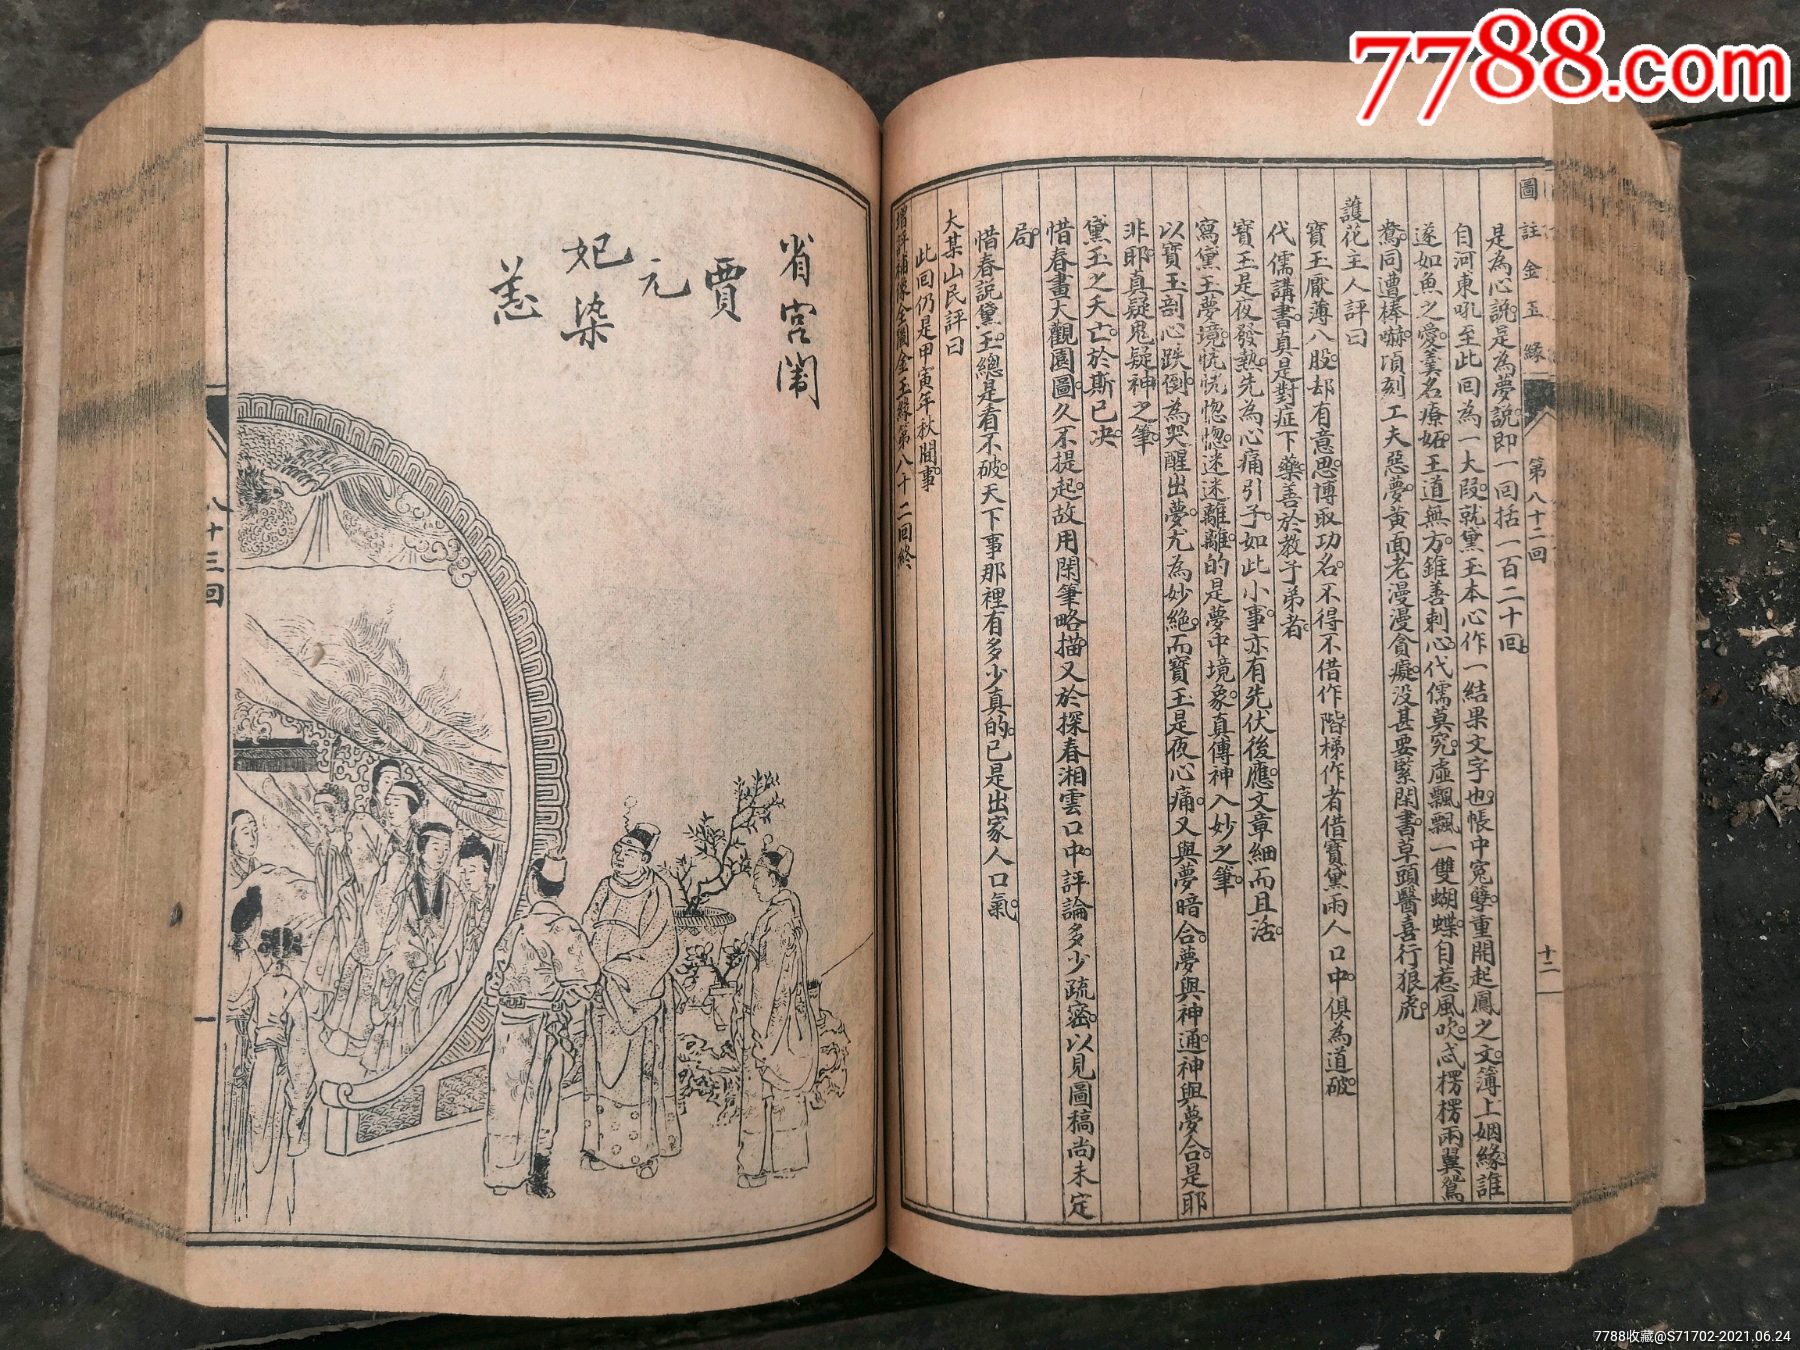 7788.com
圖註金玉緣
第八十二回
十二
是為心說是為夢說即一回括一百二十回
自河東吼至此回為一大段就黛玉本心作一結果文字也帳中冤孽重開起鳳之文簿上姻緣誰
遂如魚之愛羹名療妬王道無方錐善刺心代儒莫究虛飄飄一雙蝴蝶自惹風吹忒楞楞兩翼鴛
鴦同遭棒嚇頃刻工夫惡夢黃面老漫漫貪癡沒甚要緊閑書草頭醫喜行狼虎
護花主人評曰
寶玉厭薄八股却有意思博取功名不得不借作階梯作者借寶黛兩人口中俱為道破
代儒講書真是對症下藥善於教子弟者
寶玉是夜發熱先為心痛引子如此小事亦有先伏後應文章細而且活
寫黛玉夢境恍恍惚惚迷迷離離的是夢中境象真傳神入妙之筆
以寶玉剖心跌倒為哭醒出夢尤為妙絕而寶玉是夜心痛又與夢暗合夢與神通神與夢合是耶
非耶真疑鬼疑神之筆
黛玉之夭亡於斯已决
惜春畫大觀園圖久不提起故用閑筆略描又於探春湘雲口中評論多少疏密以見圖稿尚未定
局
惜春說黛玉總是看不破天下事那裡有多少真的已是出家人口氣
大某山民評曰
此回仍是甲寅年秋間事
增評補像全圖金玉緣第八十二回終
省宮闈
賈
元
妃染
恙
八十三回
一
7788收藏@S71702-2021.06.24